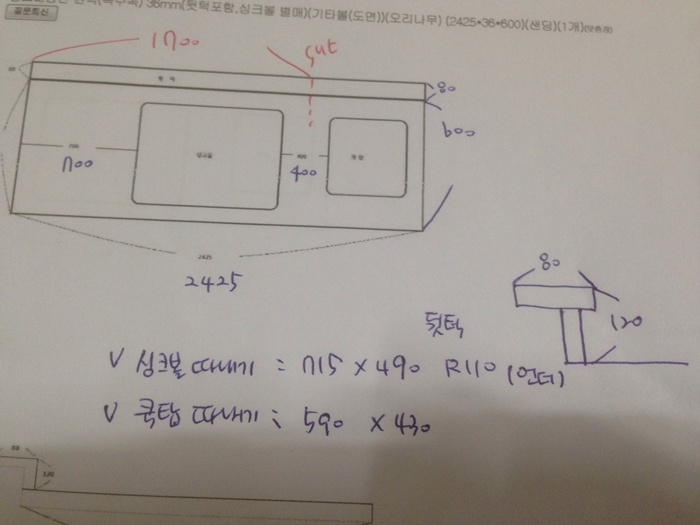 36mm(뒷턱포함,싱크볼 별매)(기타볼(도면))(오리나무) (2425*36*600)(샌딩)(1개)
1700
cut
80
뒷턱
600
700
싱크볼
400
쿡탑
2425
2425
80
뒷턱
120
V 싱크볼 따내기 = 715 X 490 R110 (언더)
V 쿡탑 따내기 : 590 X 430
120